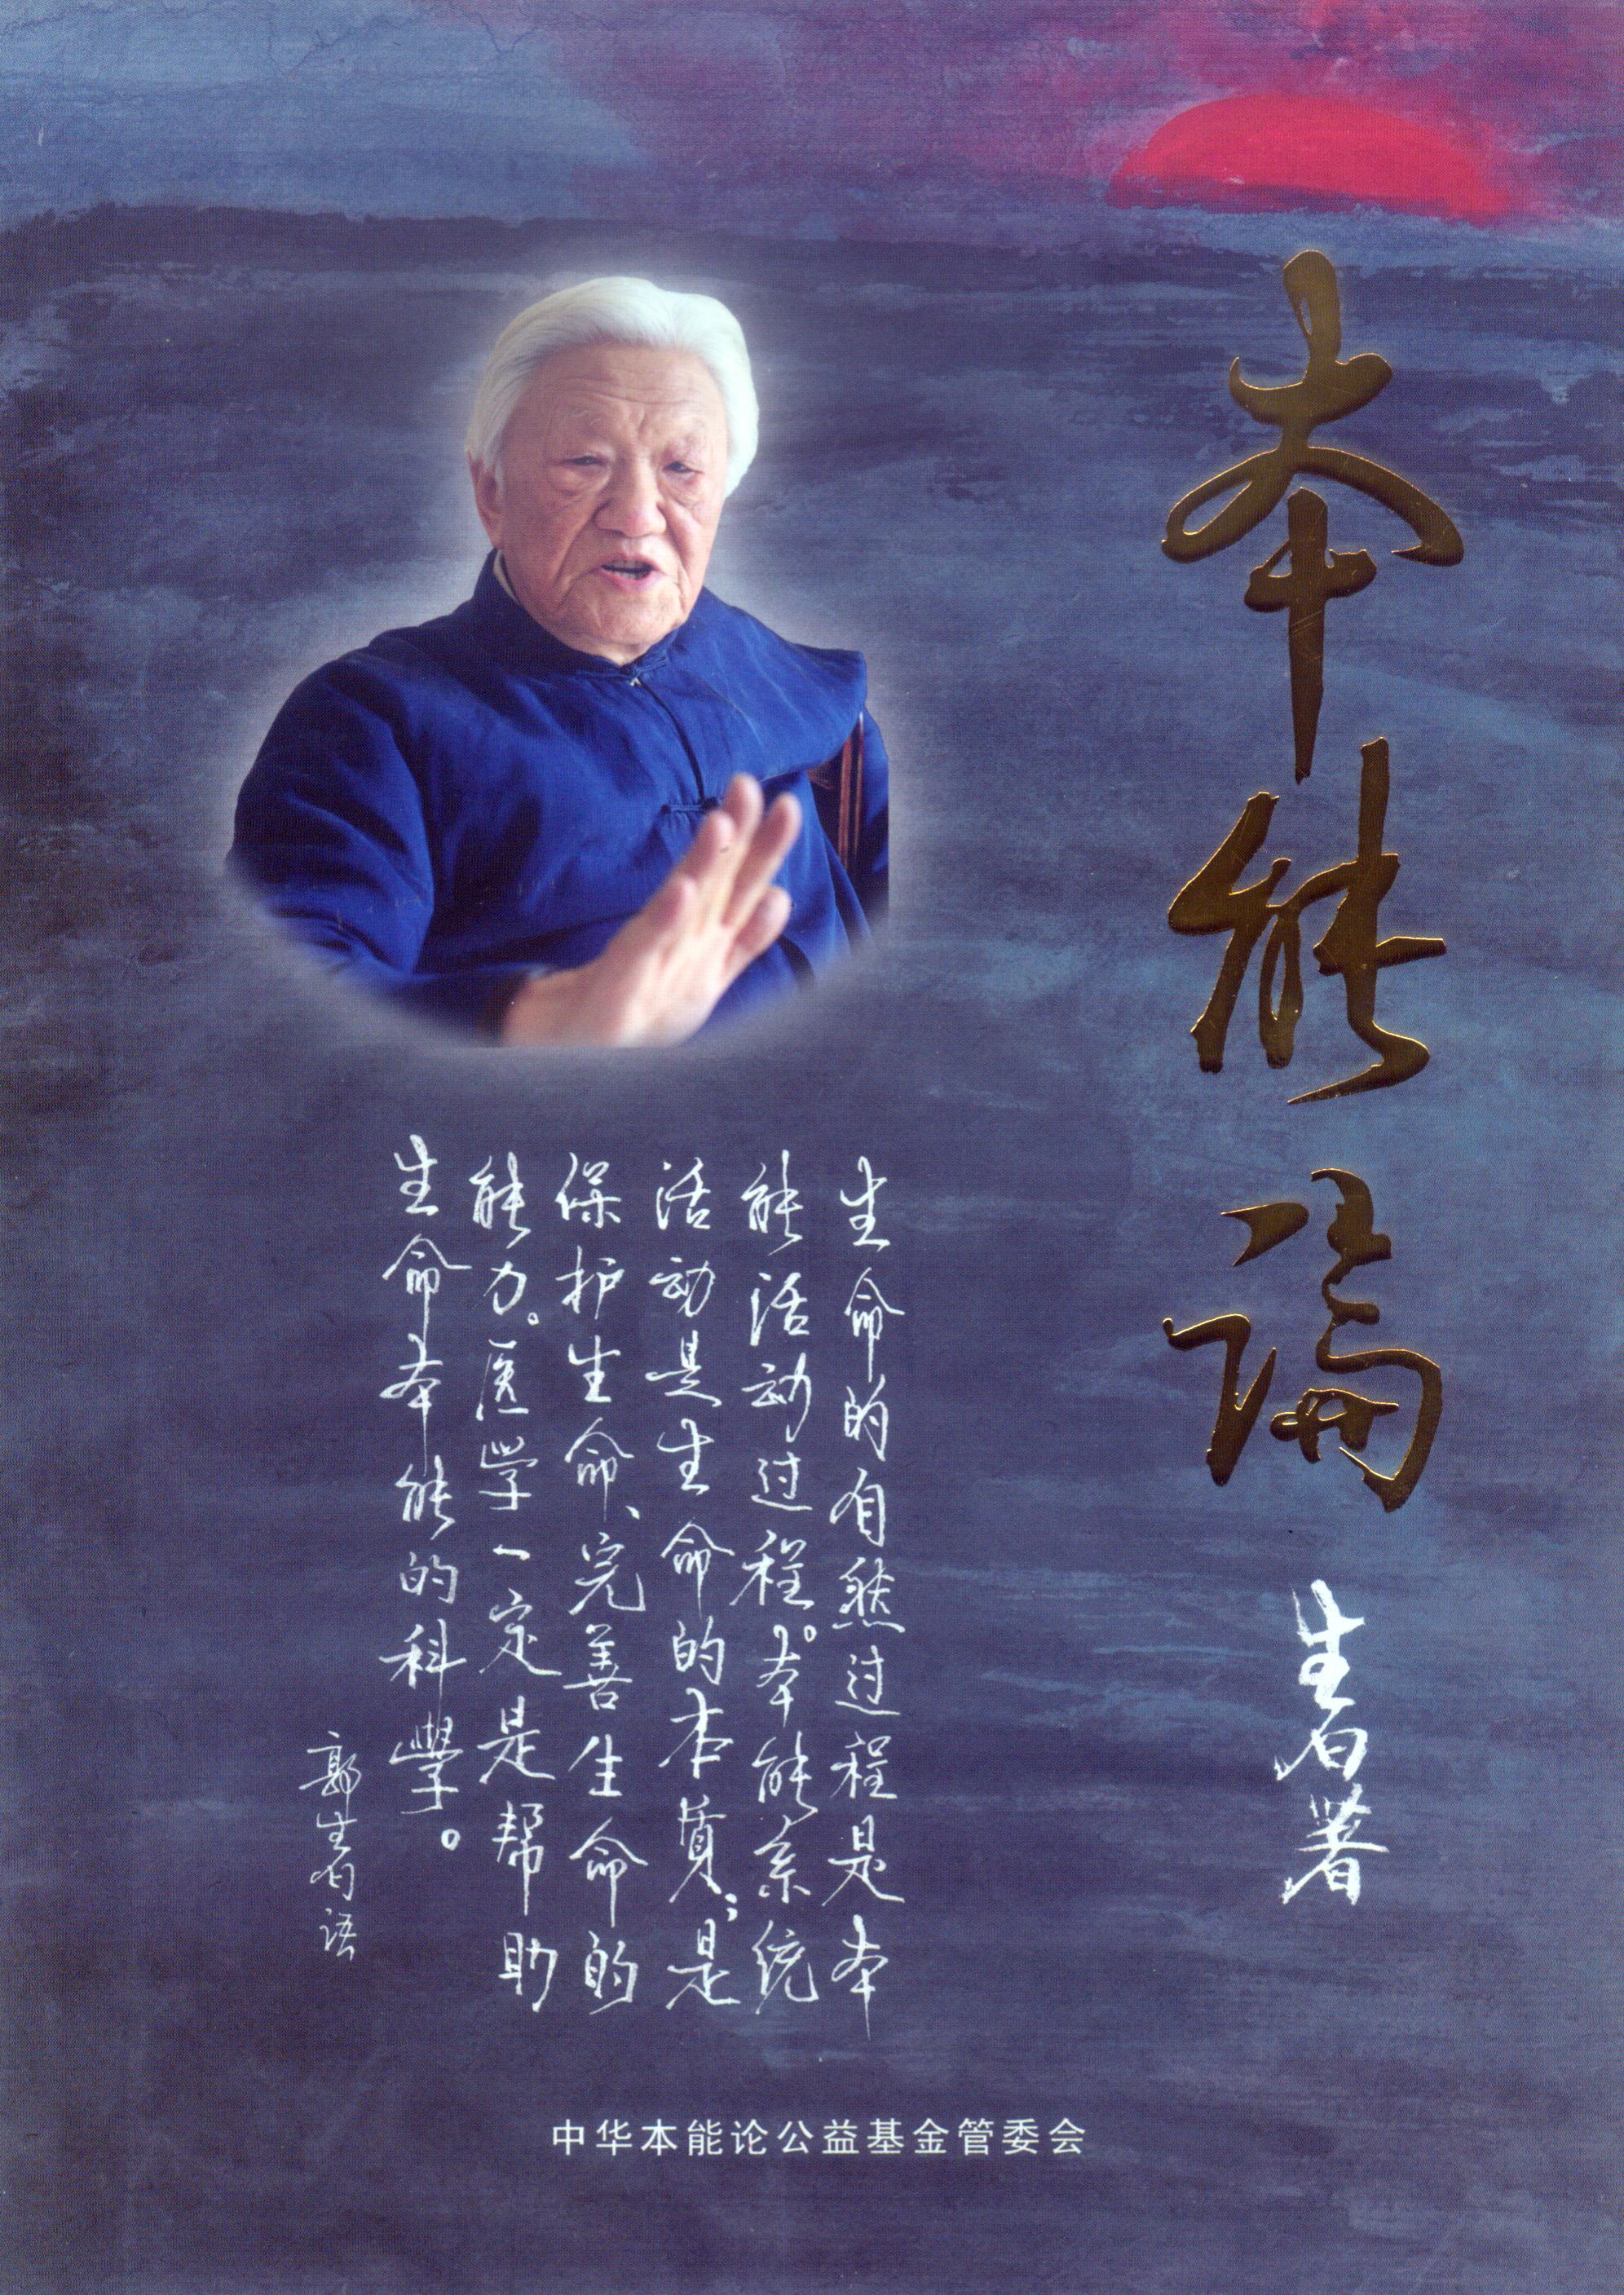 本能論
生白著
生命的自然过程是本
能活动过程。本能系统
活动是生命的本质；是
保护生命、完善生命的
能力。医学一定是帮助
生命本能的科學。
郭生白语
中华本能论公益基金管委会